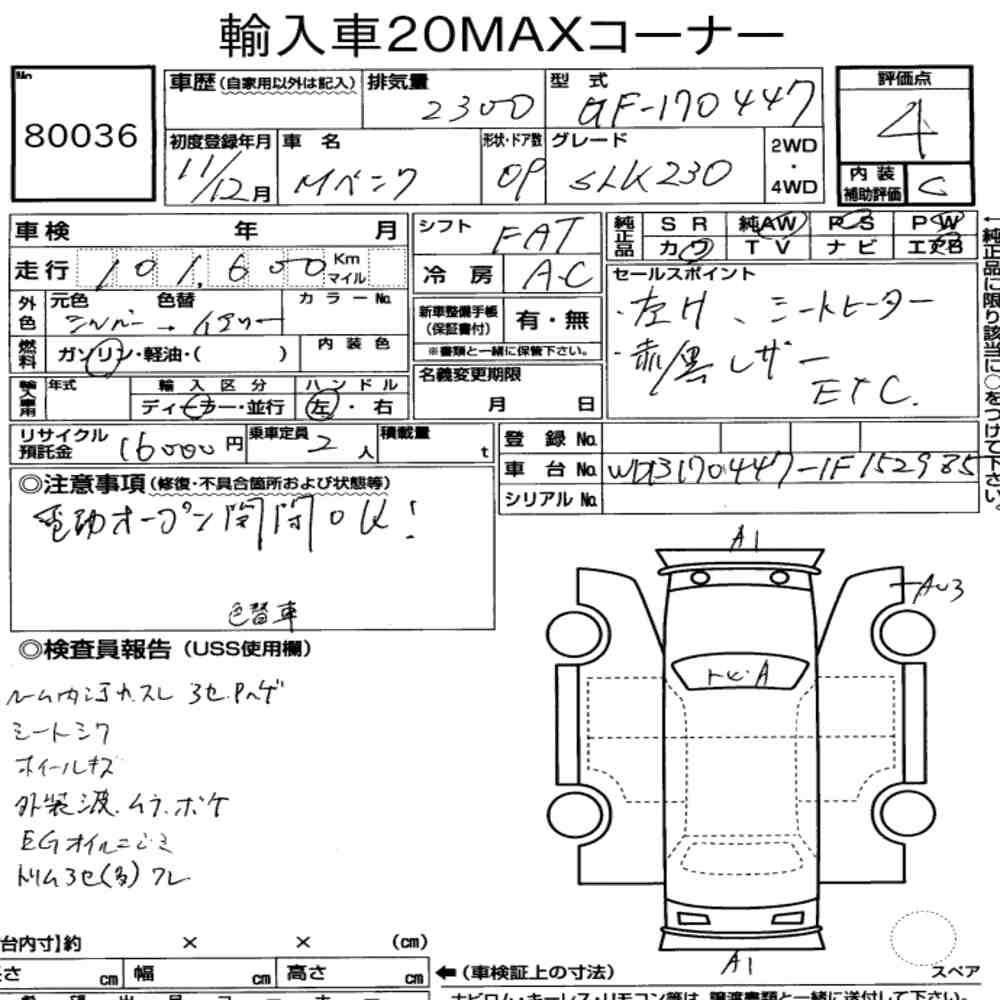 輸入車20MAXコーナー
No.
80036
車歴(自家用以外は記入)
排気量 2300
型式 GF-170447
評価点
4
初度登録年月 11/12月
車名 Mベンツ
形状・ドア数 OP
グレード SLK230
2WD・4WD
内装補助評価 C
車検 年 月
走行 101,600 Km マイル
外色 元色 色替 カラーNo.
シルバー → イエロー
燃料 ガソリン・軽油・( ) 内装色
輸入車用 年式 輸入区分 ハンドル
ディーラー・並行 左・右
リサイクル預託金 16000円
乗車定員 2人
積載量 t
シフト FAT
冷房 A-C
新車整備手帳(保証書付) 有・無
※書類と一緒に保管下さい。
名義変更期限
月 日
純正品 SR 純AW PS PW
カワ TV ナビ エアB
←純正品に限り該当に○をつけて下さい。
セールスポイント
・左H、シートヒーター
・赤/黒レザー
ETC.
登録No.
車台No. WDB170447-1F152985
シリアルNo.
◎注意事項(修復・不具合箇所および状態等)
電動オープン開閉OK!
色替車
◎検査員報告(USS使用欄)
ルーム内汚.カスレ 3セ.Pハゲ
シートシワ
ホイールキズ
外装波.ムラ.ボケ
EGオイルニジミ
トリム3セ(多)フレ
A1
AU3
トビ.A
A1
台内寸】約 × × (cm)
長さ cm 幅 cm 高さ cm
←(車検証上の寸法)
スペア
ナビロム・キーレス・リモコン等は、譲渡書類と一緒に送付して下さい。